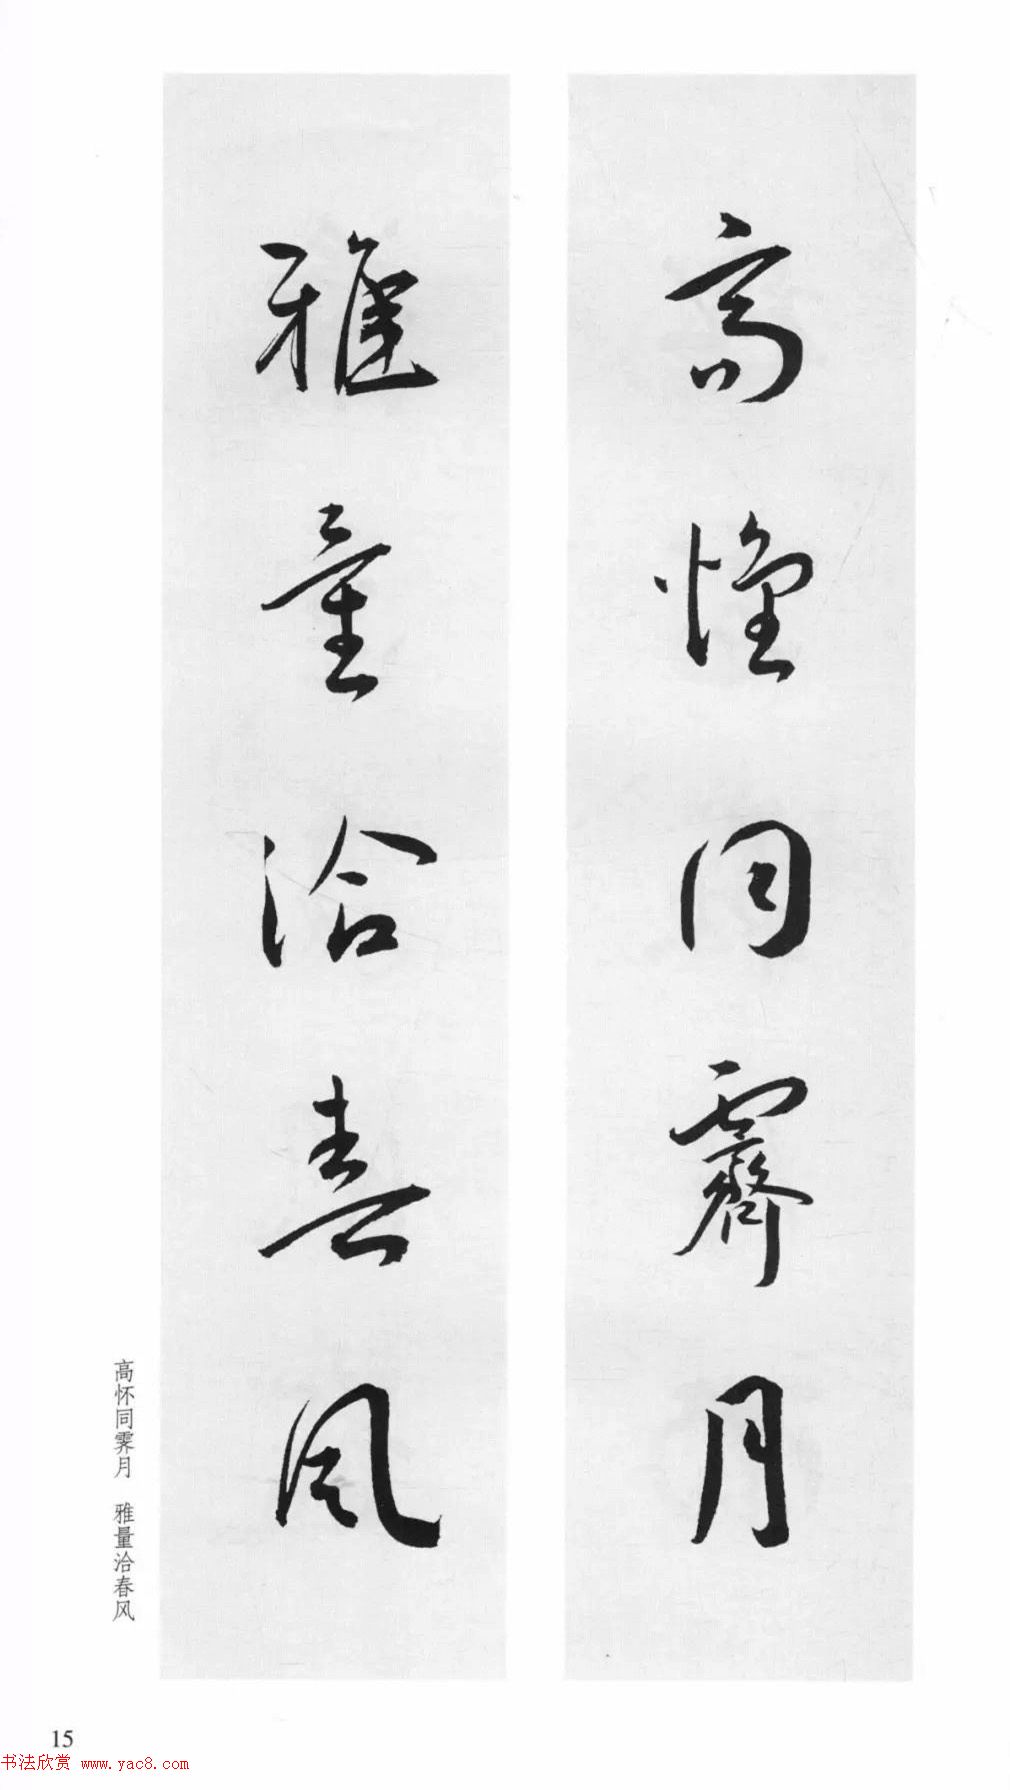 高懷同霽月
雅量洽春風
高怀同霁月 雅量洽春风
15
书法欣赏 www.yac8.com